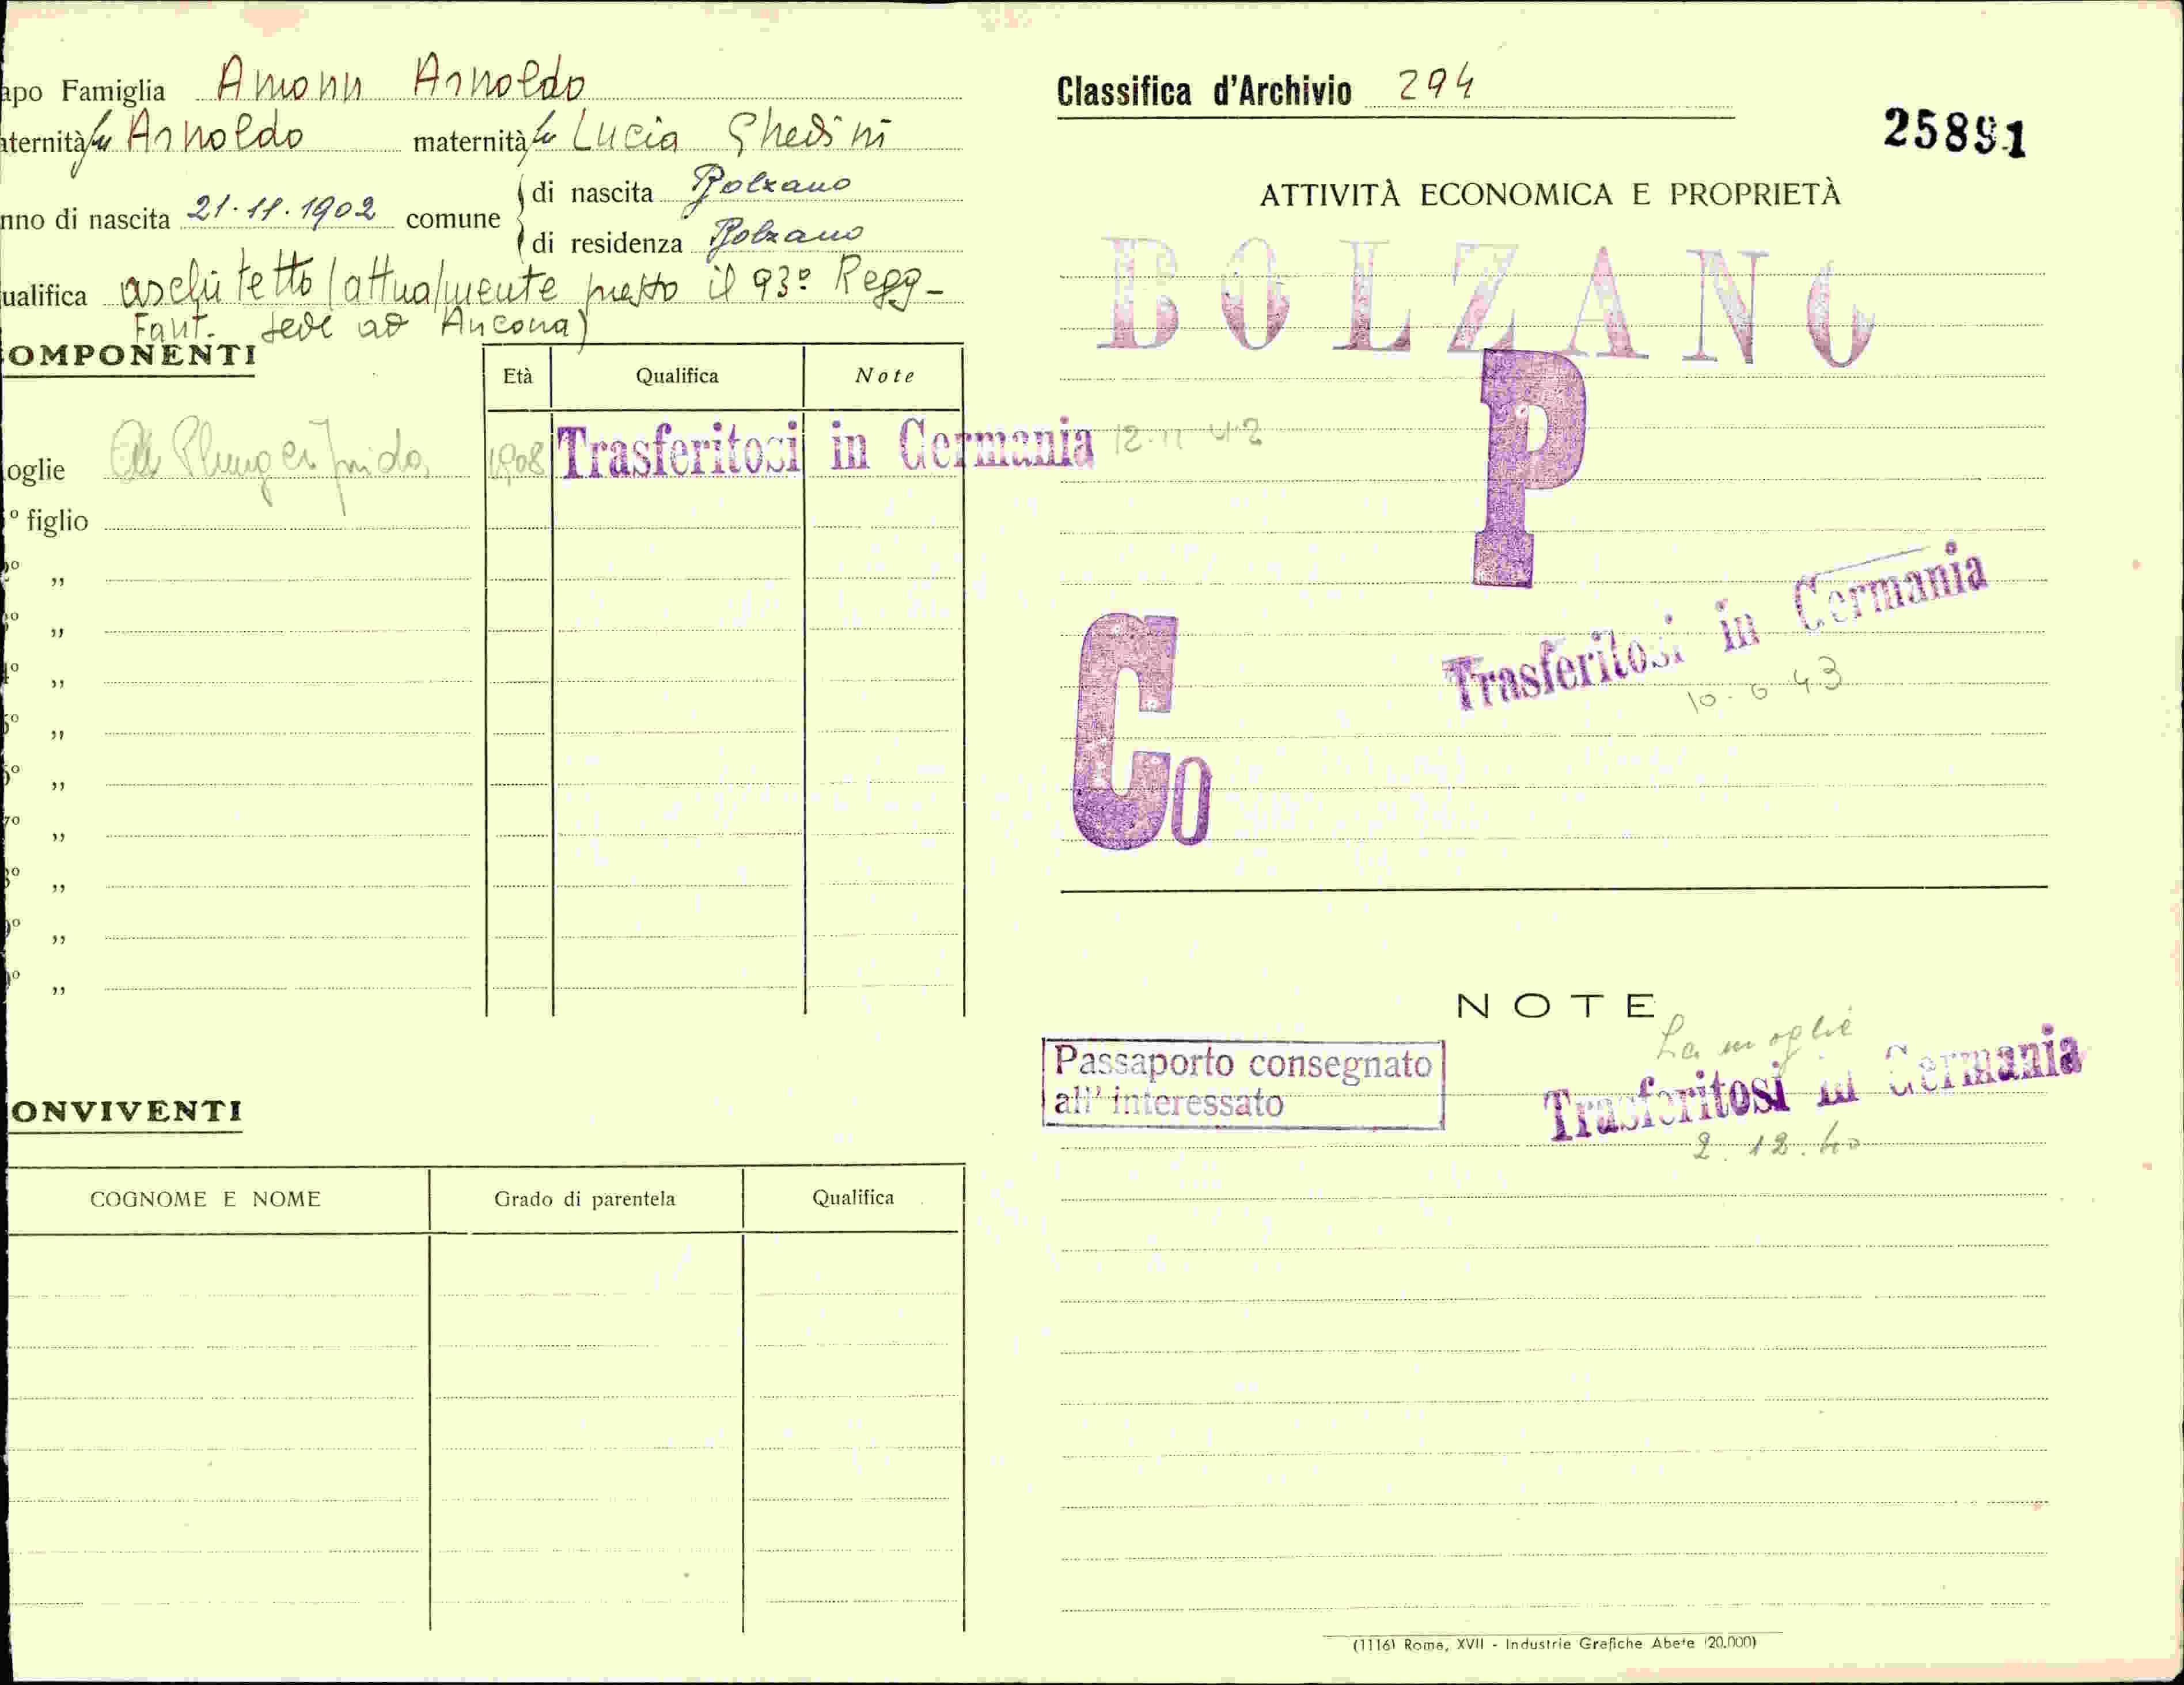 apo Famiglia Amonn Arnoldo
aternità fu Arnoldo maternità fu Lucia Ghedini
nno di nascita 21.11.1902 comune
di nascita Bolzano
di residenza Bolzano
ualifica architetto (attualmente presso il 93º Regg-
Fant. sede ad Ancona)
OMPONENTI
Età Qualifica Note
oglie 1908 Trasferitosi in Germania 12.11 42
º figlio
º „
º „
º „
º „
º „
7º „
º „
º „
º „
ONVIVENTI
COGNOME E NOME Grado di parentela Qualifica
Classifica d'Archivio 294
25891
ATTIVITÀ ECONOMICA E PROPRIETÀ
BOLZANO
P
Trasferitosi in Germania
10.6 43
Co
NOTE
La moglie
Passaporto consegnato
all' interessato
Trasferitosi in Germania
2.12.40
(1116) Roma, XVII - Industrie Grafiche Abete (20.000)